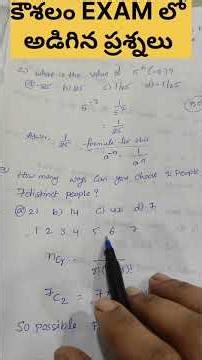 కౌశలం EXAM లో
అడిగిన ప్రశ్నలు
2) what is the value of 5
a) -25 b) 25 c) 1/25 d) -1/25
5⁻² = 1/5²
= 1/25
Answer: 1/25 formula for this
a⁻ⁿ = 1/aⁿ
How many ways can you choose 2 people
7 distinct people?
a) 21 b) 14 c) 42 d) 7
1 2 3 4 5 6 7
nCr =
7C2 = 7
So possible